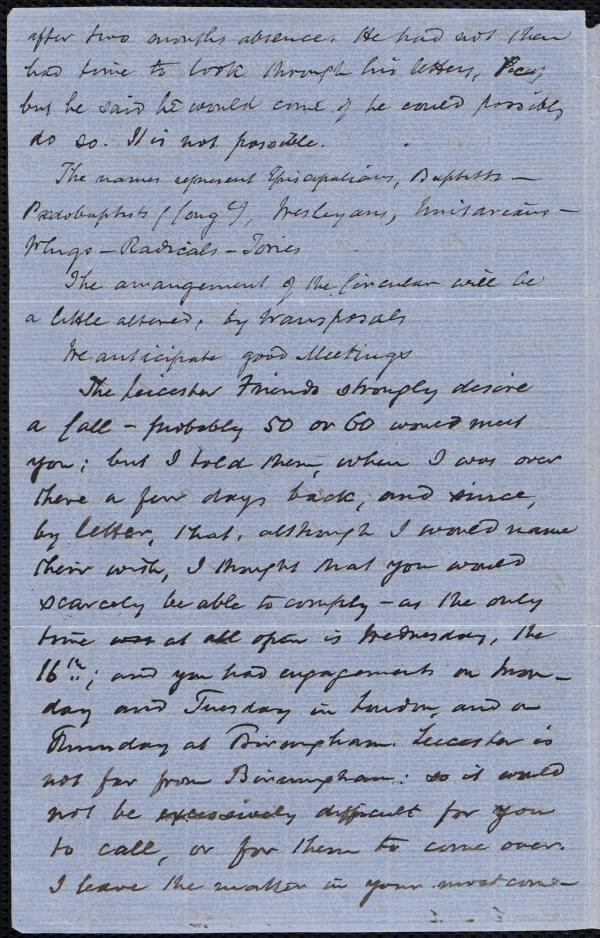 after two months absence. He had not then
had time to look through his letters,
but he said he would come if he could possibly
do so. It is not possible.
The names represent Episcopalians, Baptists —
Pædobaptists (Congl), Wesleyans, Unitarians —
Whigs — Radicals — Tories
The arrangement of the Circular will be
a little altered, by transposals
We anticipate good Meetings
The Leicester Friends strongly desire
a Call — probably 50 or 60 would meet
you; but I told them, when I was over
there a few days back, and since,
by letter, that, although I would name
their wish, I thought that you would
scarcely be able to comply — as the only
time at all open is Wednesday, the
16th; and you had engagements on Mon-
day and Tuesday in London, and on
Thursday at Birmingham. Leicester is
not far from Birmingham: so it would
not be excessively difficult for you
to call, or for them to come over.
I leave the matter in your most com-